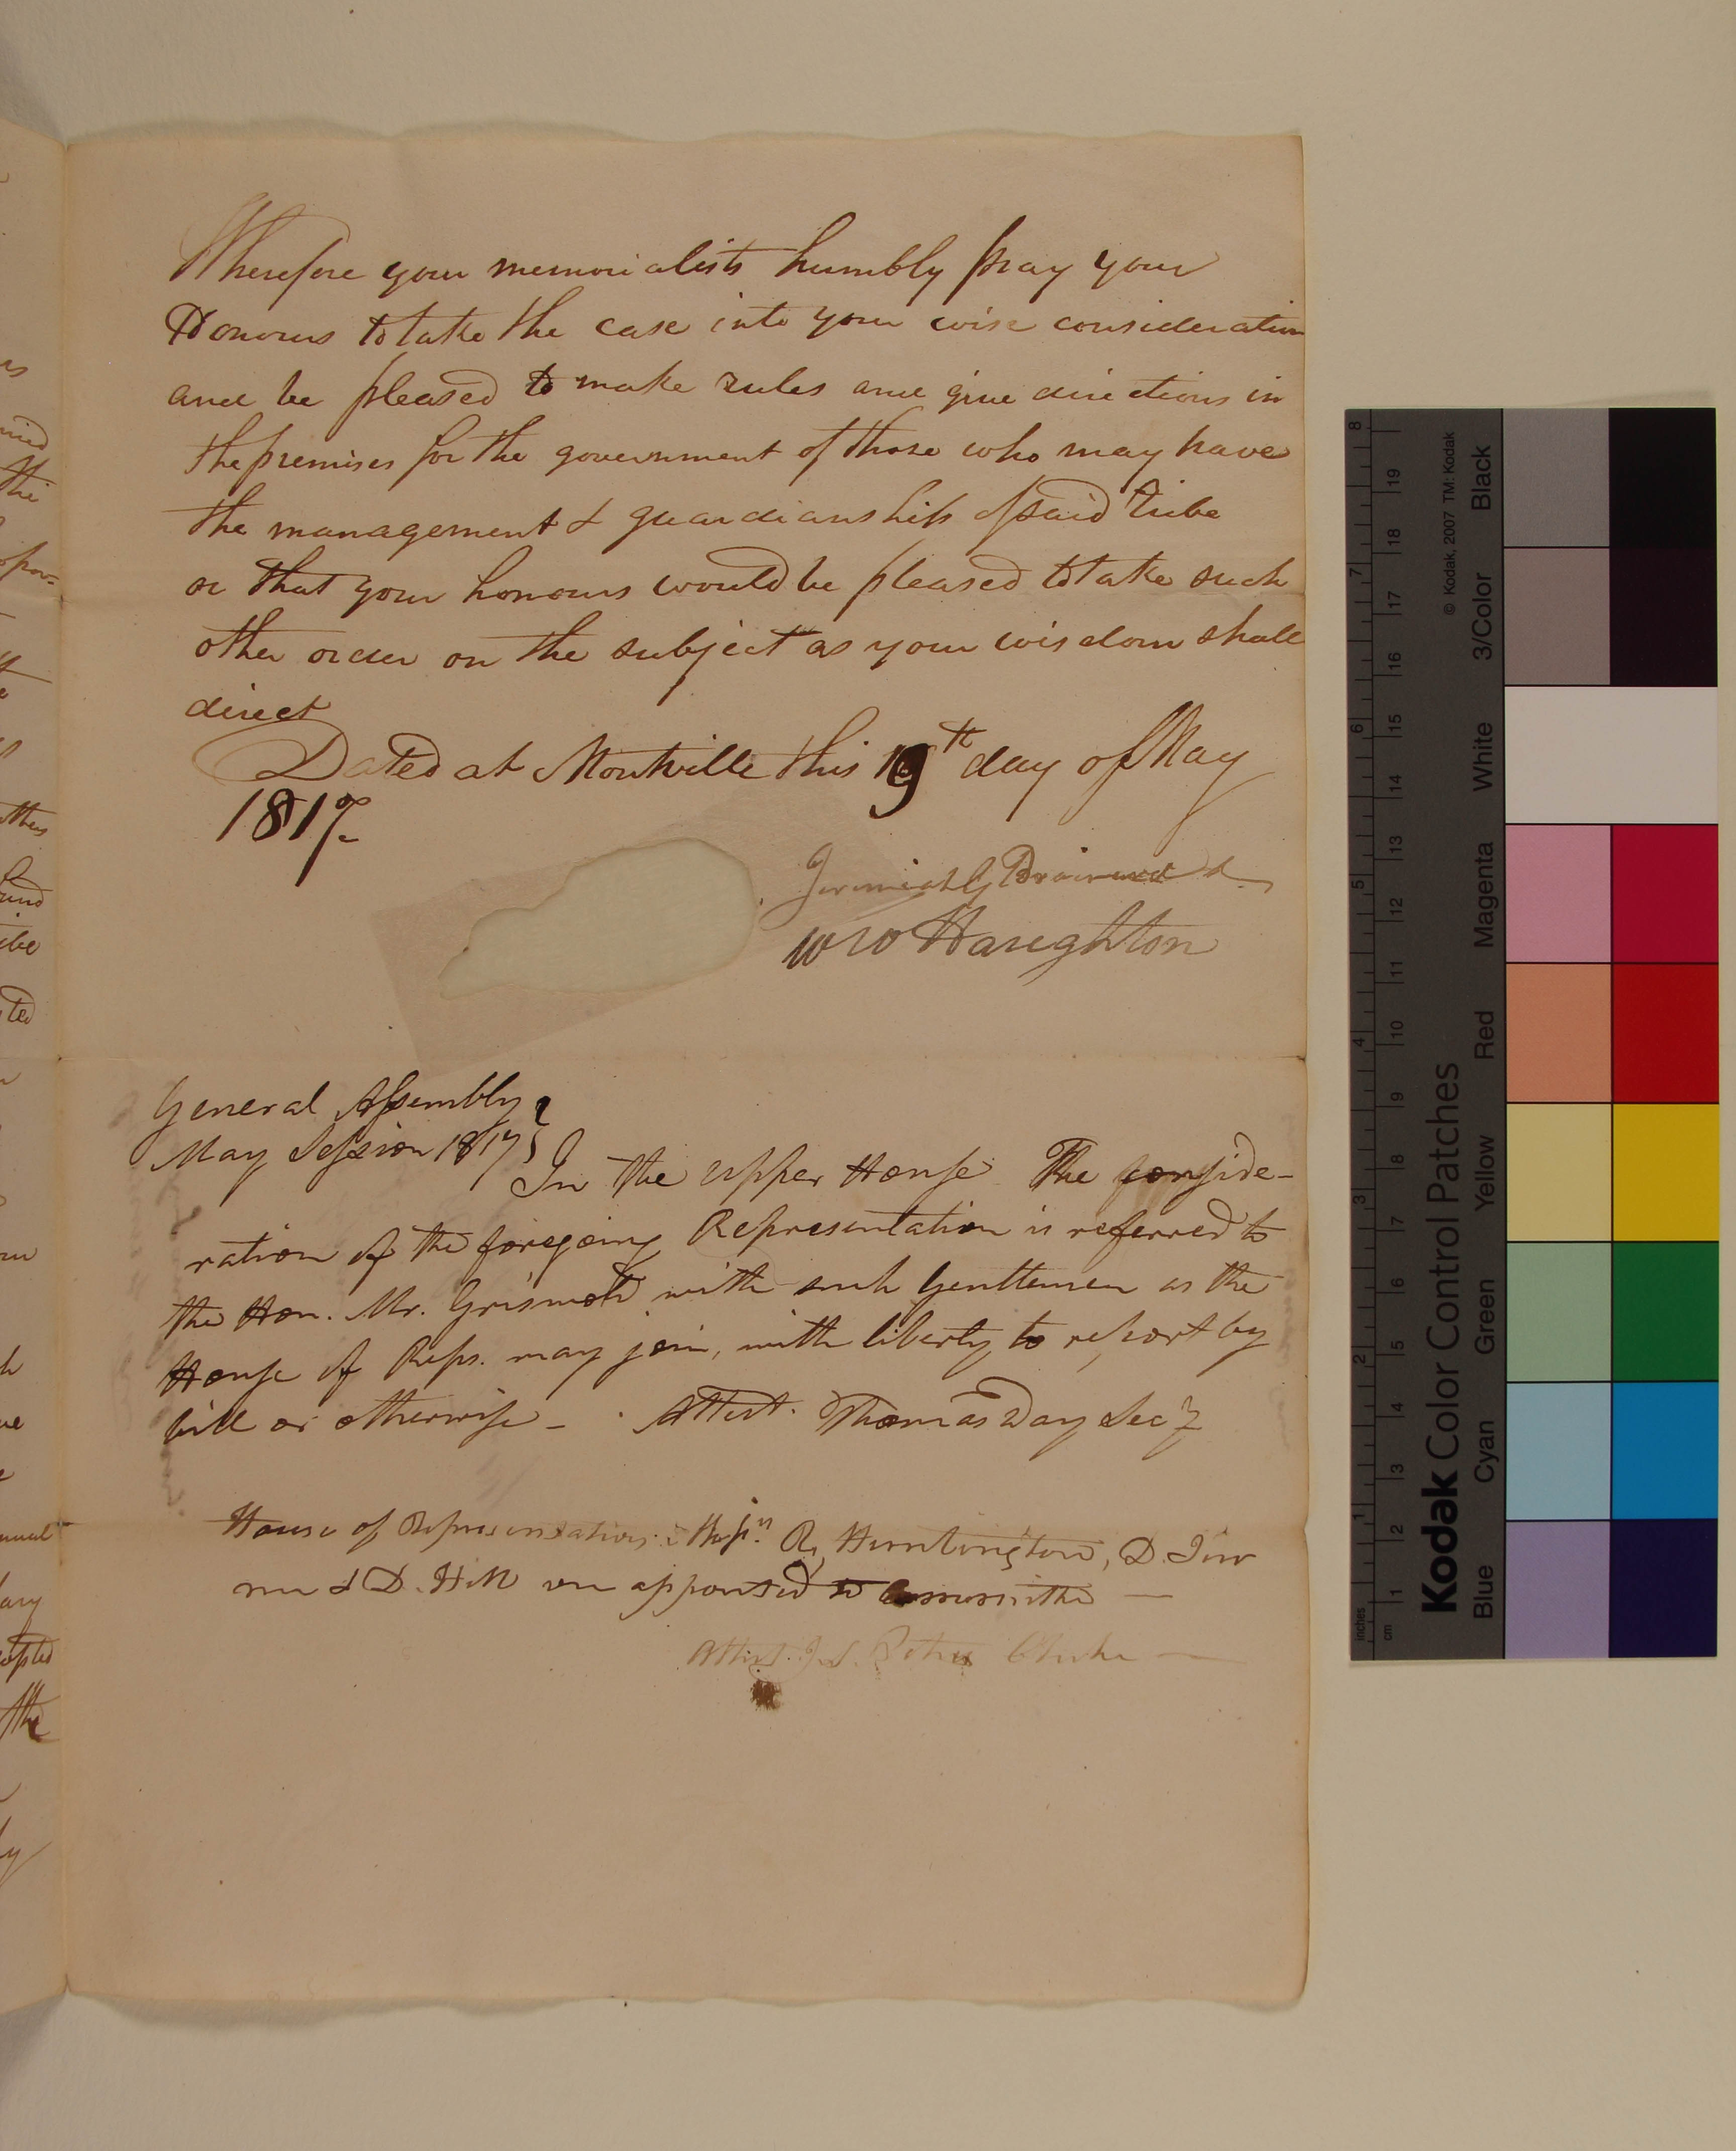 Therefore your memorialists humbly pray your
Honours to take the case into your wise consideration
and be pleased to make rules and give directions in
the premises for the government of those who may have
the management & guardianship of said Tribe
or that your honours would be pleased to take such
other order on the subject as your wisdom shall
direct
Dated at Montville this 19th day of May
1817
Jeremiah G Brainard
W W Haughton
General Assembly
May Session 1817
In the Upper House The conside-
ration of the foregoing Representation is referred to
the Hon. Mr. Griswold with such Gentlemen as the
House of Reps. may join, with liberty to report by
bill or otherwise - Attest. Thomas Day Secy
House of Representatives R. Huntington, D.
& D. Hill are appointed Committee —
Attest. Clerke —
8 7 6 5 4 3 2 1 inches
19 18 17 16 15 14 13 12 11 10 9 8 7 6 5 4 3 2 1 cm
© Kodak, 2007 TM: Kodak
Kodak Color Control Patches
Blue Cyan Green Yellow Red Magenta White 3/Color Black